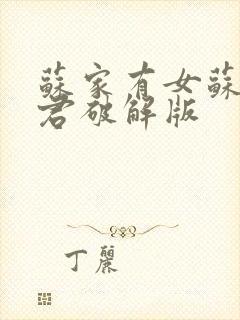 蘇家有女蘇
君破解版
丁麗